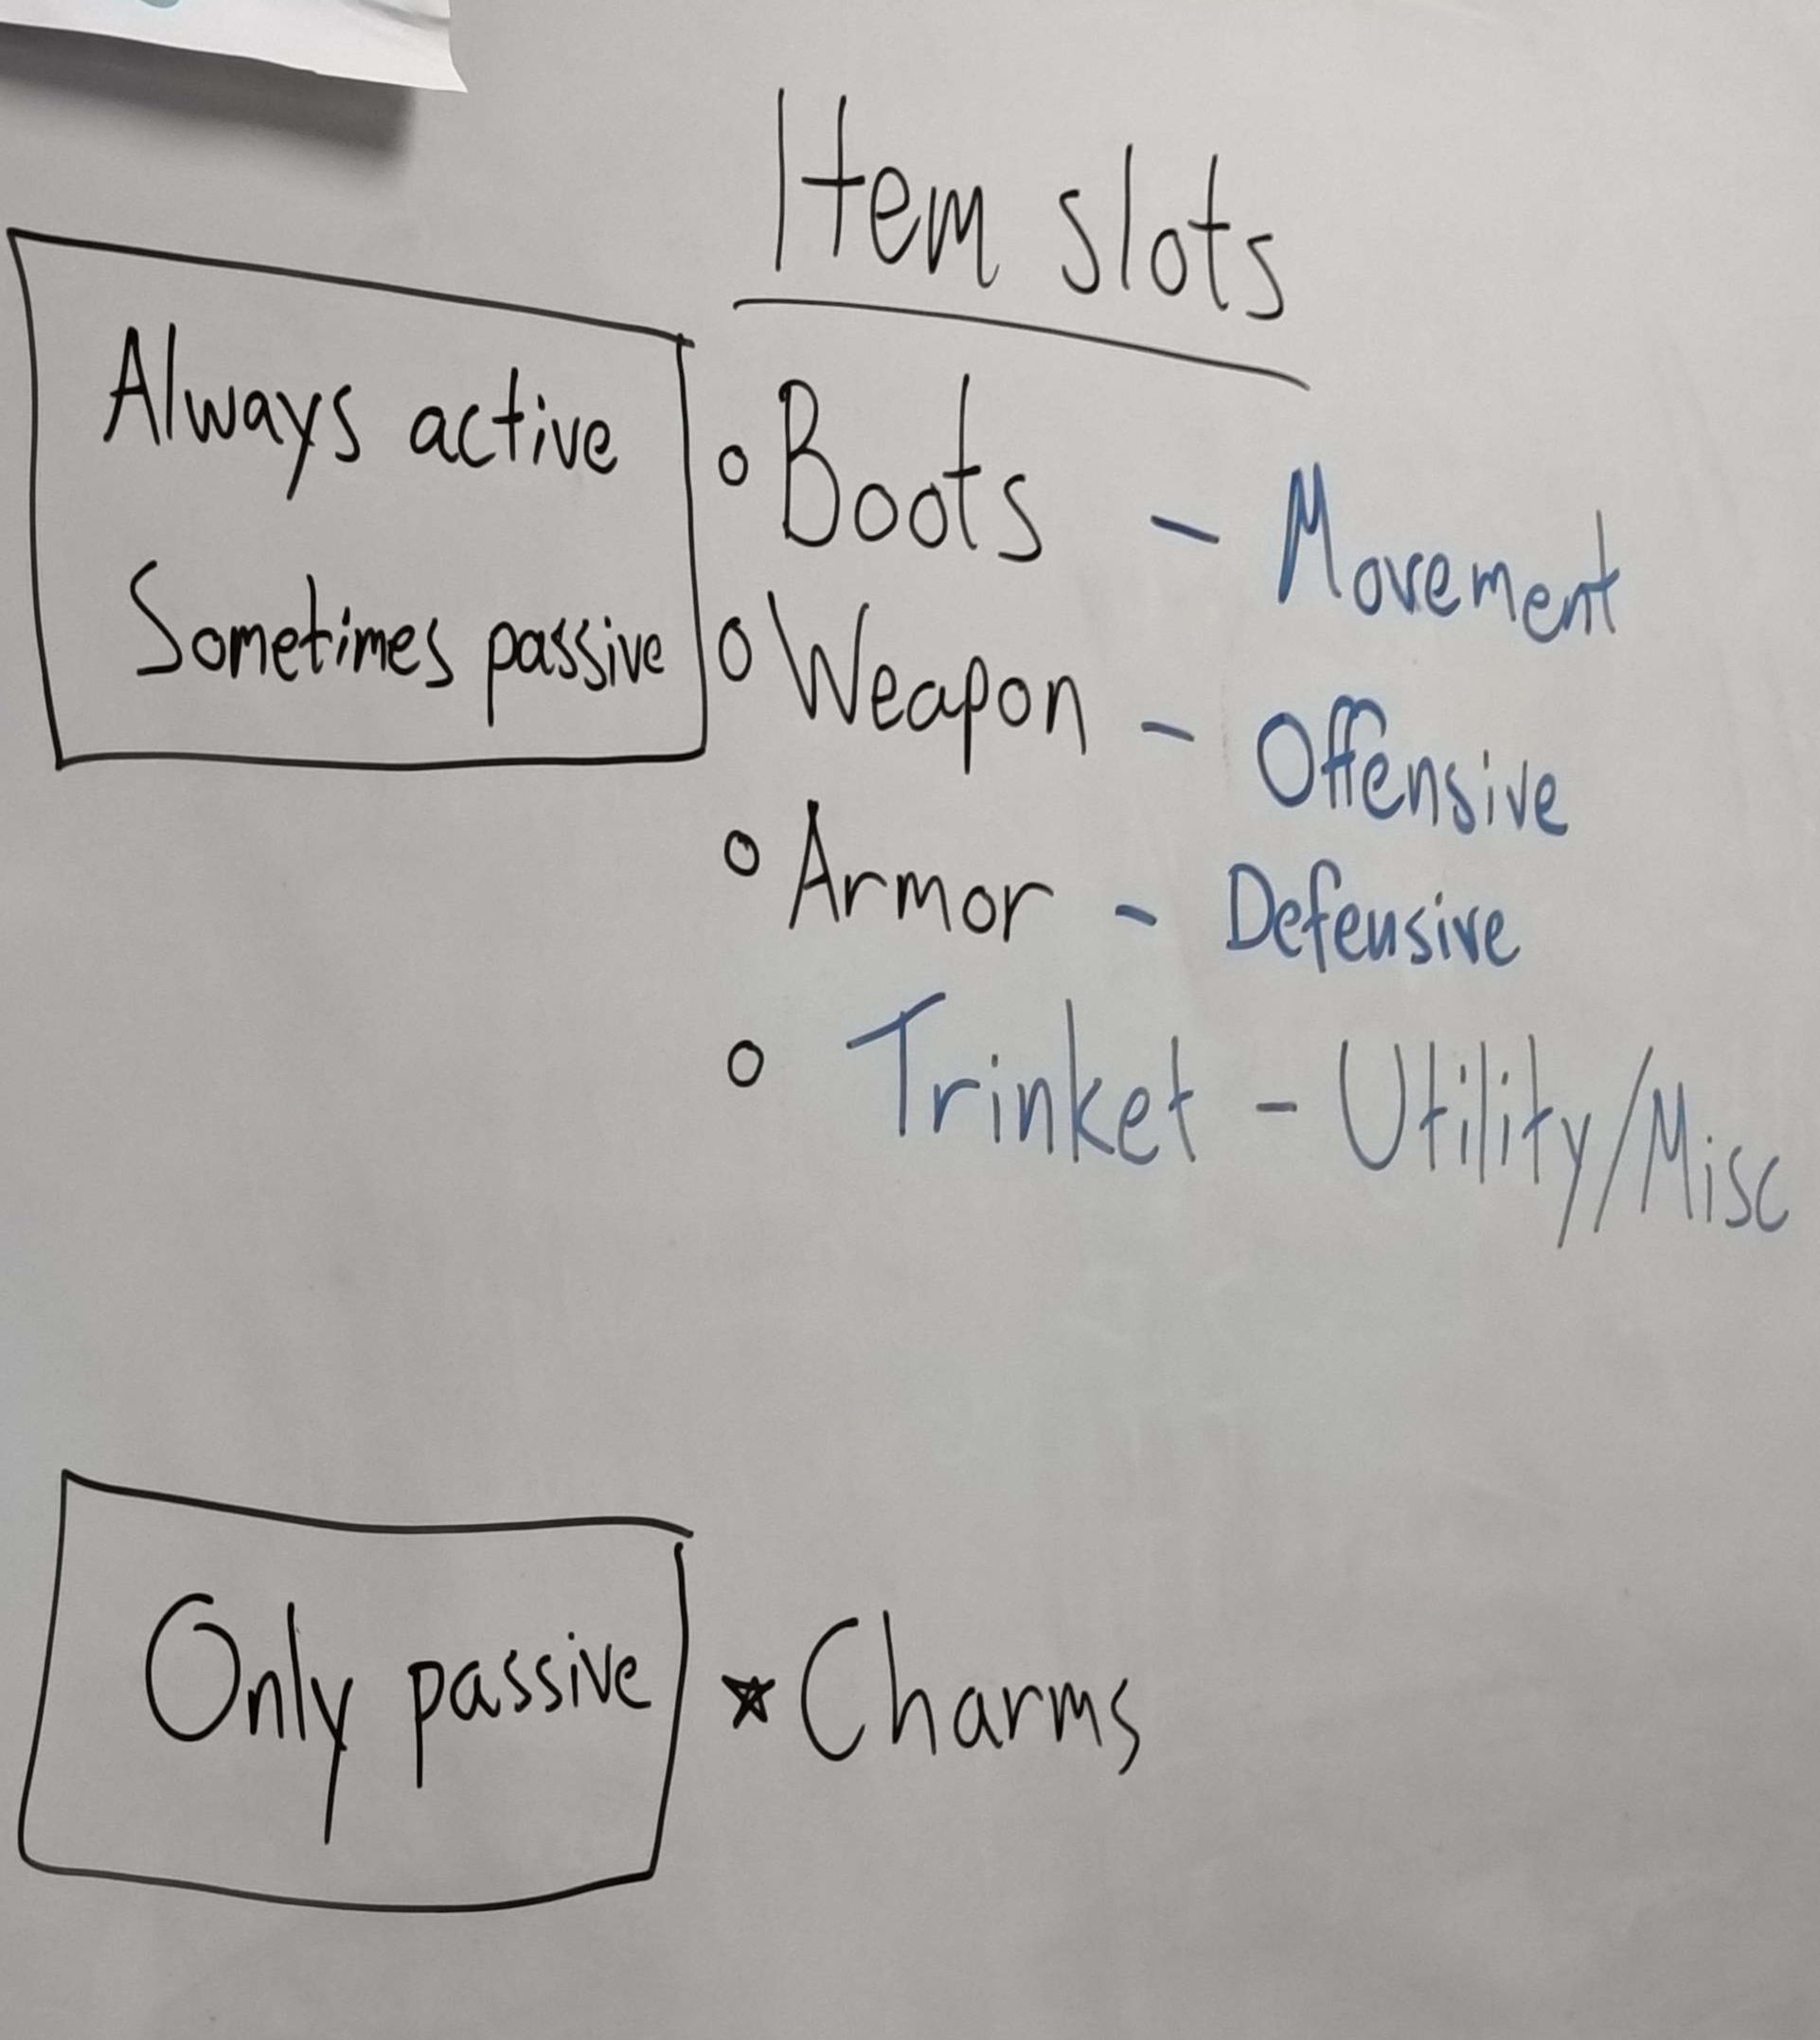 Item slots
Always active
Sometimes passive
Boots - Movement
Weapon - Offensive
Armor - Defensive
Trinket - Utility/Misc
Only passive
Charms